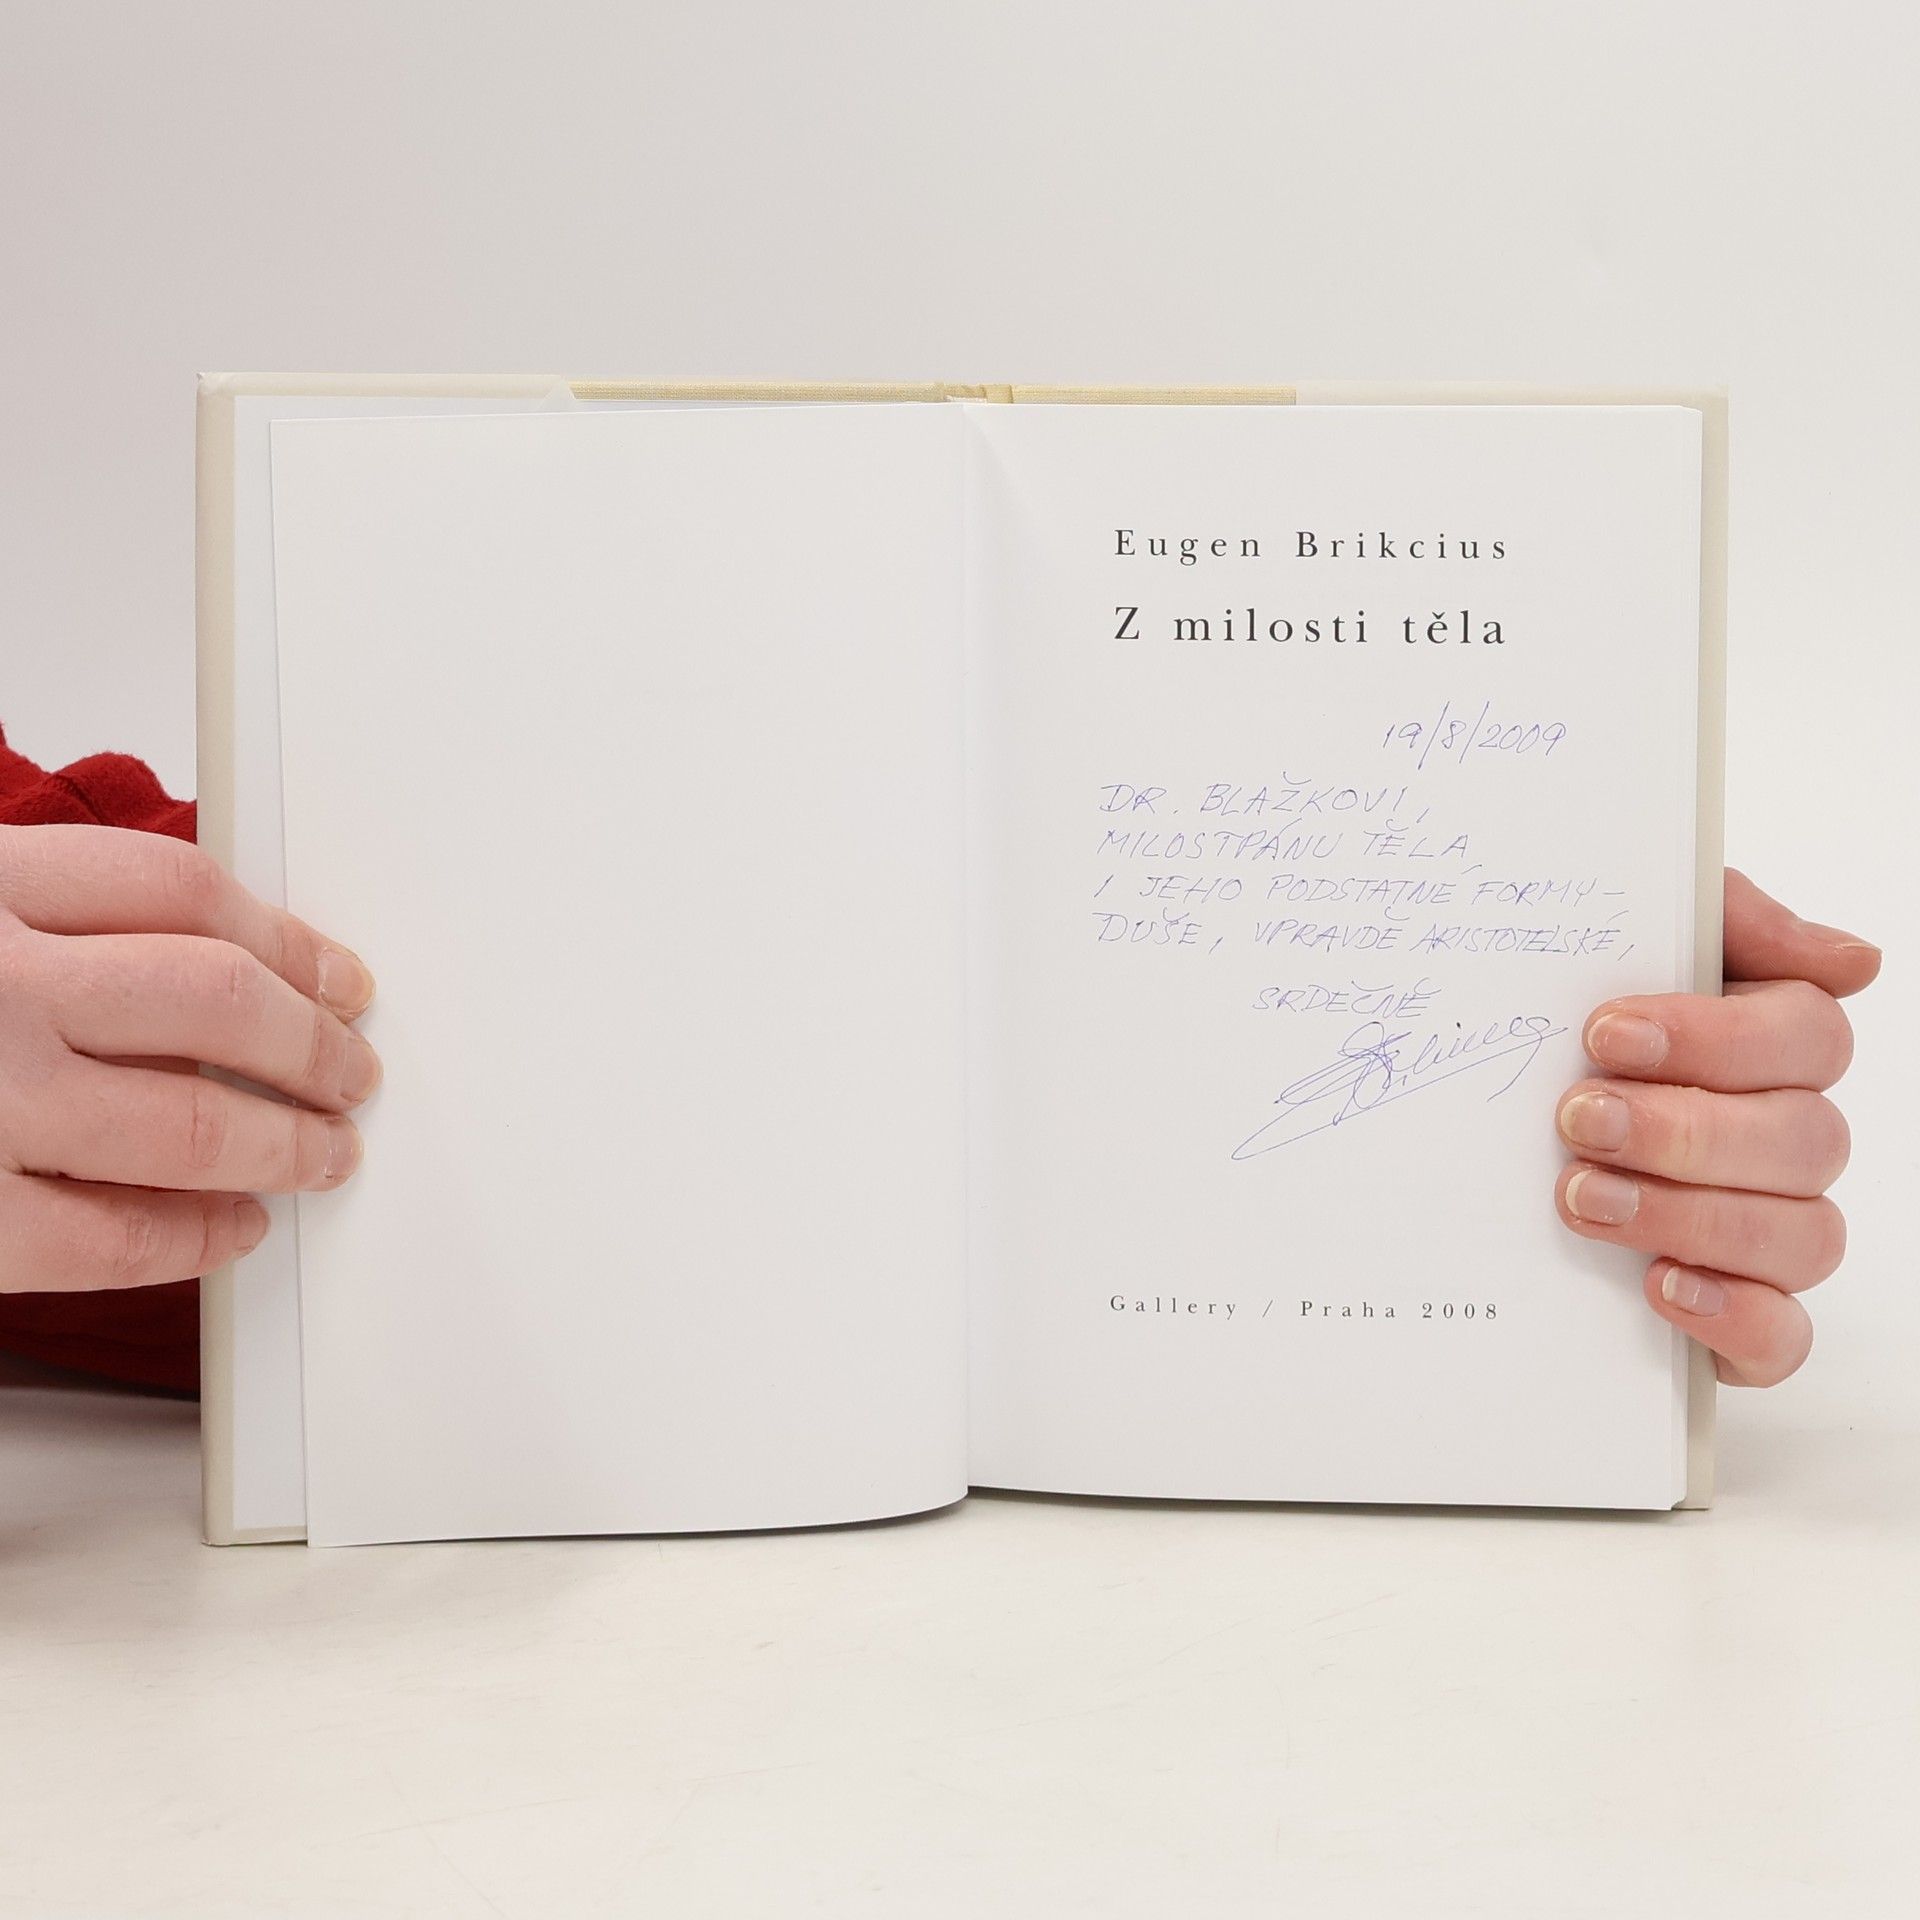 Eugen Brikcius
Z milosti těla
19/8/2009
DR. BLAŽKOVI,
MILOSTPÁNU TĚLA,
I JEHO PODSTATNÉ FORMY –
DUŠE, VPRAVDĚ ARISTOTELSKÉ,
SRDEČNĚ
Gallery / Praha 2008